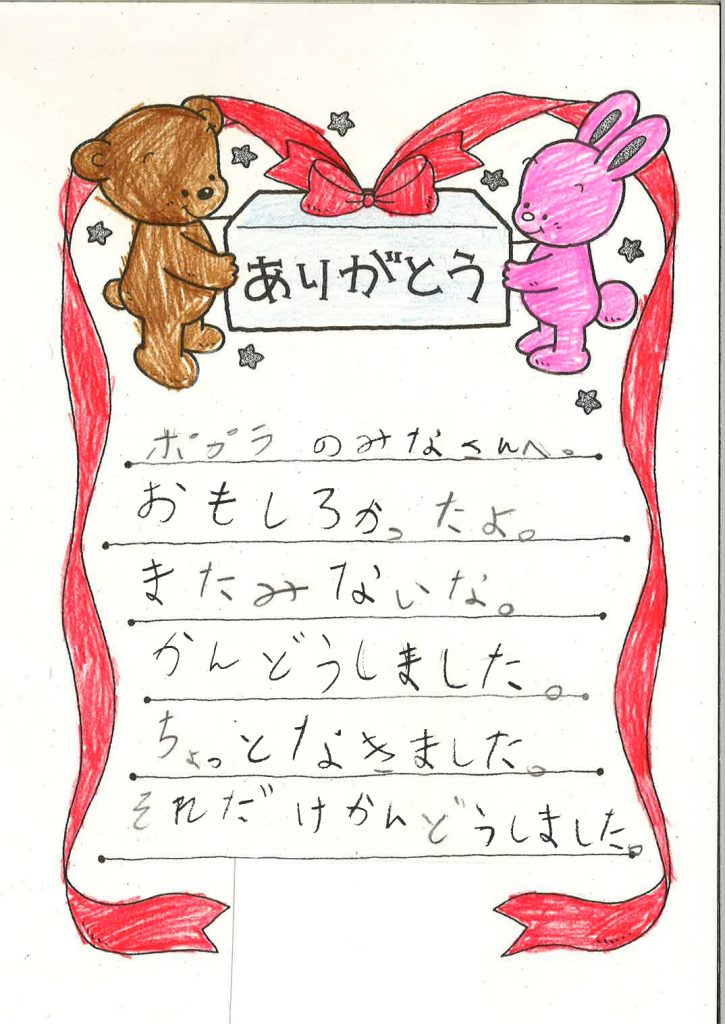 ありがとう
ポプラ のみなさんへ。
おもしろかったよ。
またみないな。
かんどうしました。
ちょっとなきました。
それだけかんどうしました。